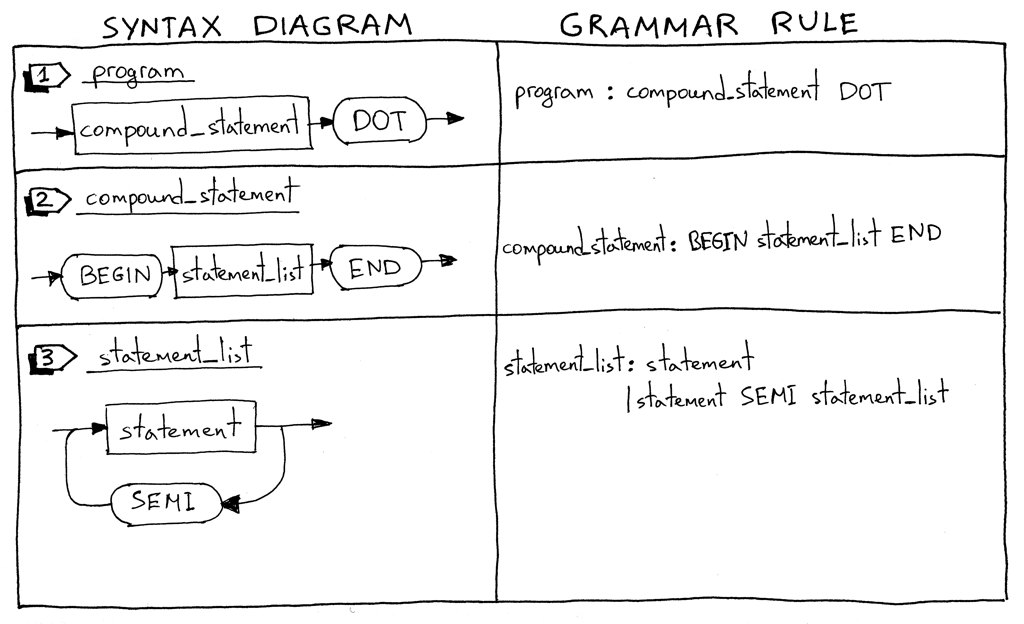 SYNTAX DIAGRAM
GRAMMAR RULE
1 program
compound_statement DOT
program : compound_statement DOT
2 compound_statement
BEGIN statement_list END
compound_statement: BEGIN statement_list END
3 statement_list
statement
SEMI
statement_list: statement
| statement SEMI statement_list